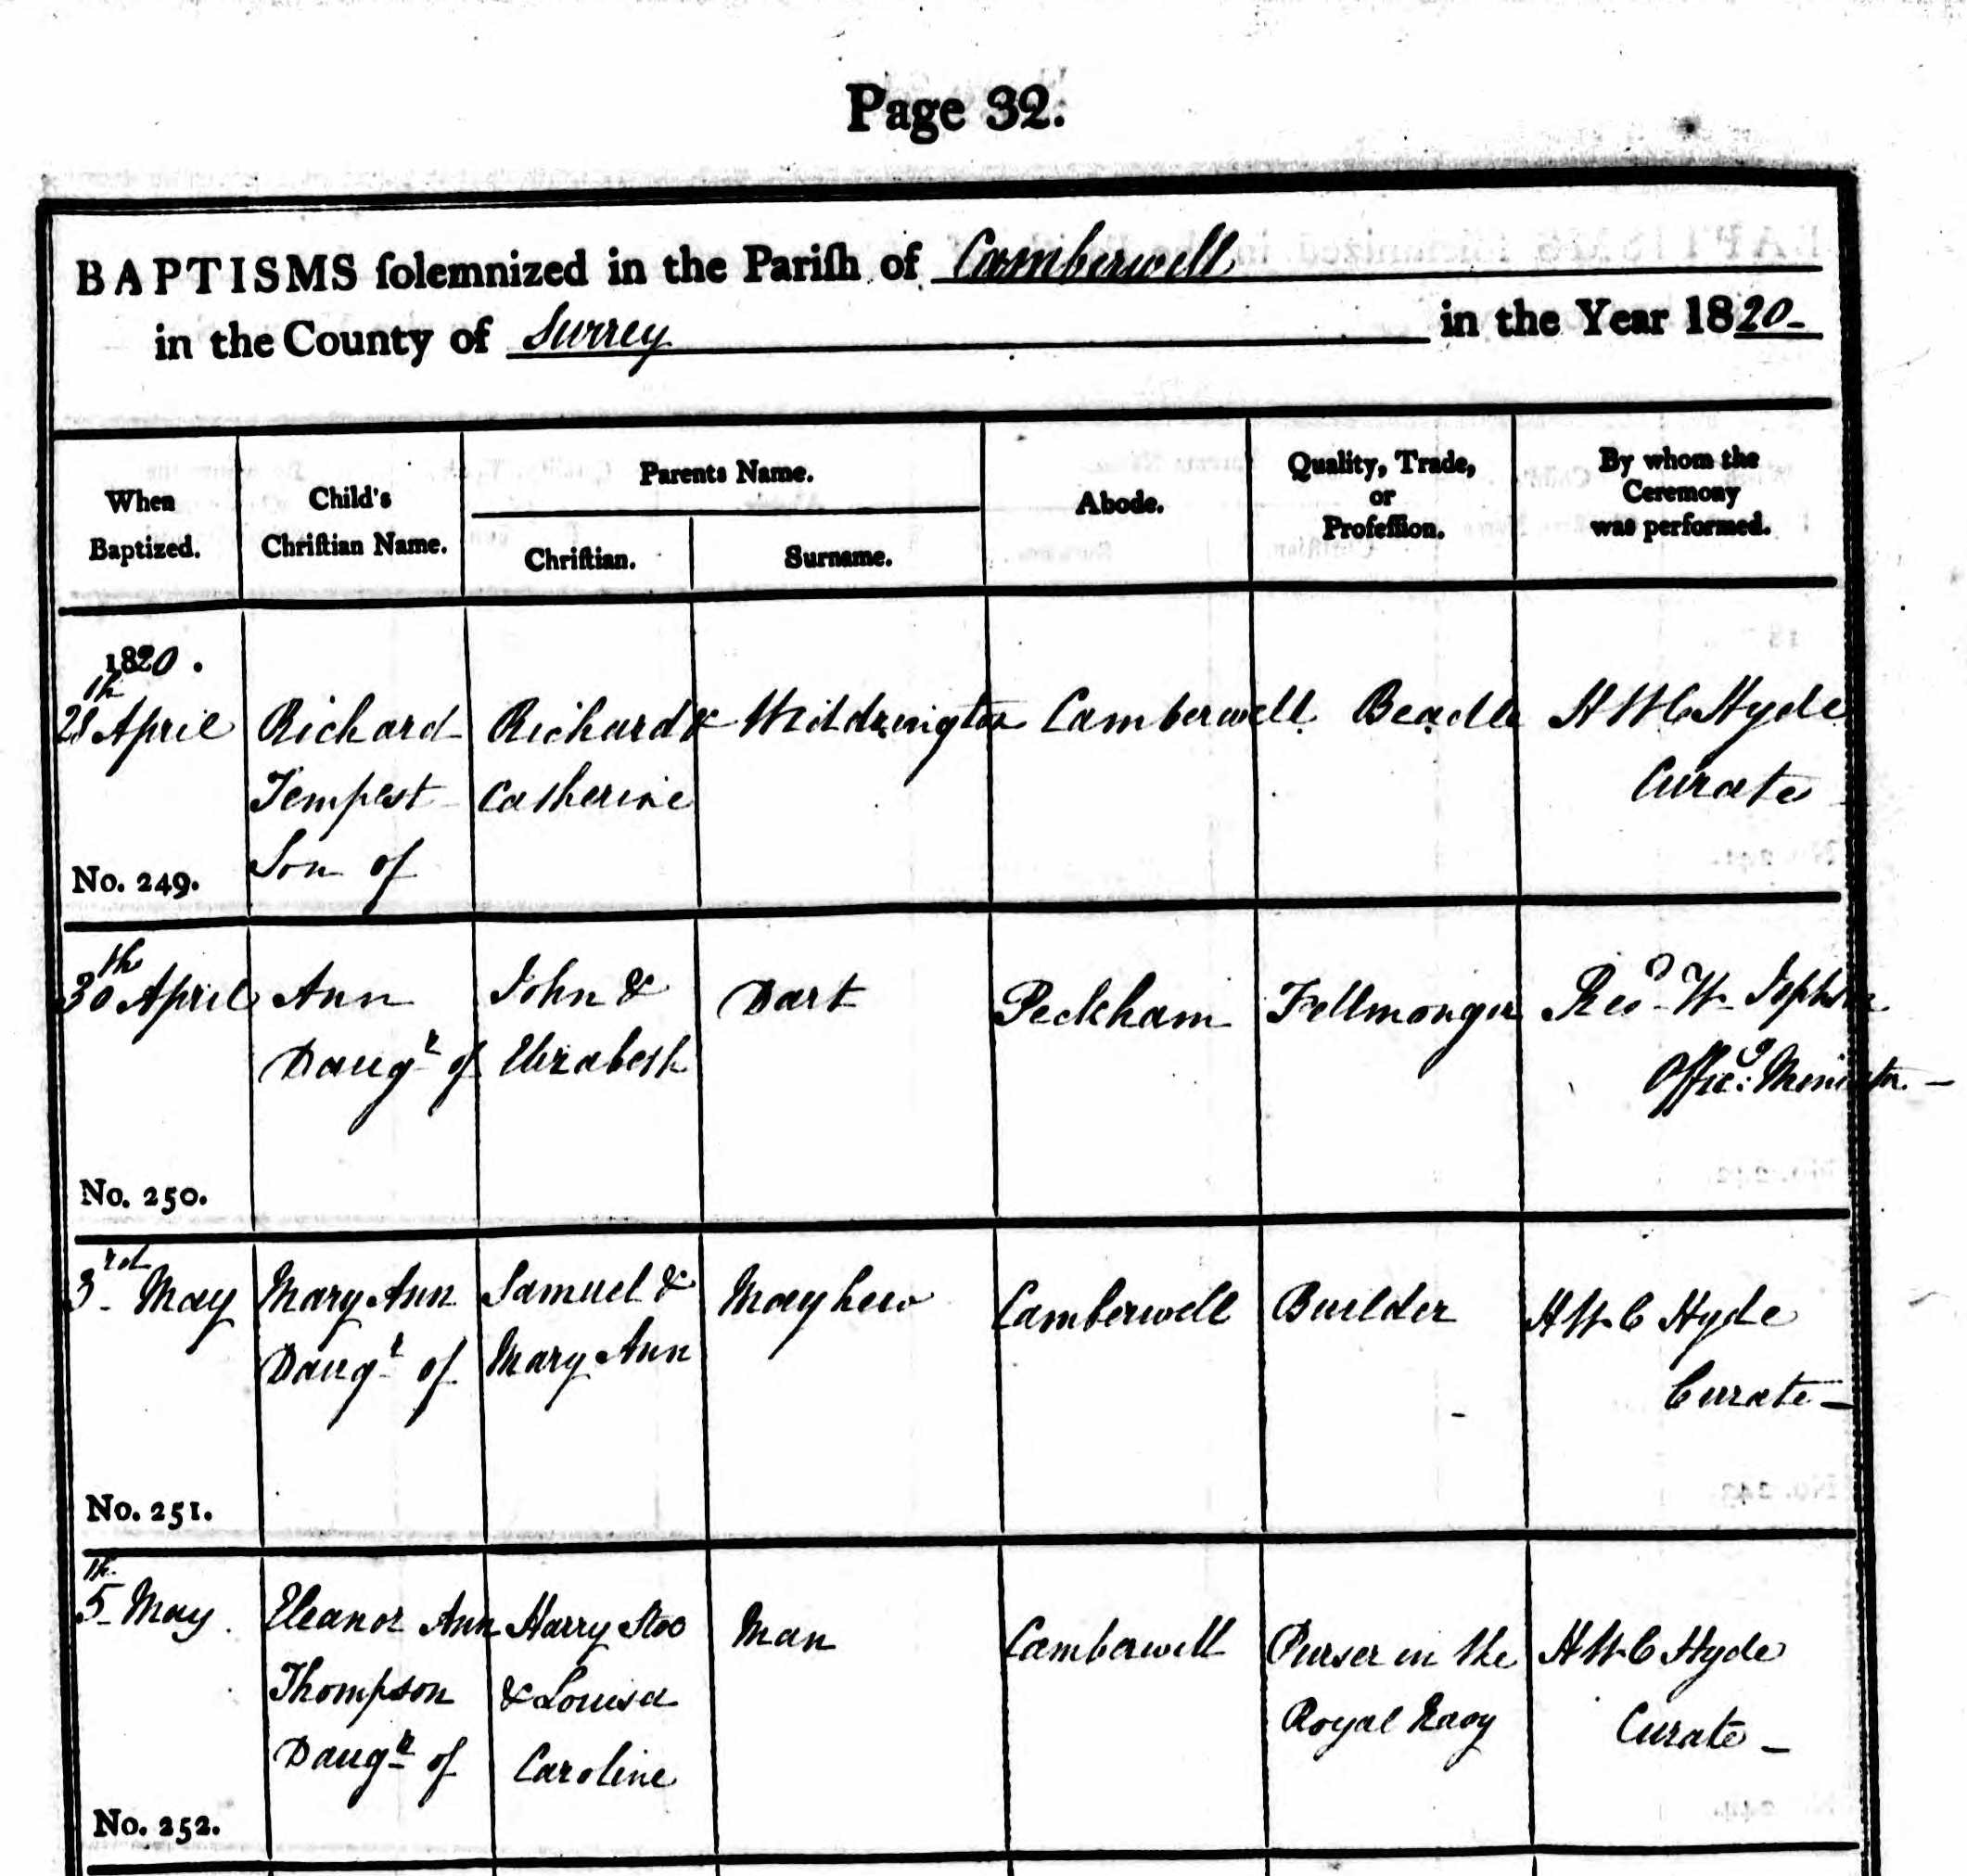 Page 32.
BAPTISMS ſolemnized in the Pariſh of Camberwell
in the County of Surrey in the Year 1820-
When
Baptized.
Child's
Chriſtian Name.
Parents Name.
Chriſtian.
Surname.
Abode.
Quality, Trade,
or
Profeſſion.
By whom the
Ceremony
was performed.
1820.
28th April
No. 249.
Richard
Tempest
Son of
Richard &
Catherine
Widdrington
Camberwell
Beadle
H W C Hyde
Curate
30th April
No. 250.
Ann
Daugr of
John &
Elizabeth
Dart
Peckham
Fellmonger
Revd W Jephson
Offic:g Minister -
3rd May
No. 251.
Mary Ann
Daugr of
Samuel &
Mary Ann
Mayhew
Camberwell
Builder
H W C Hyde
Curate -
5th May.
No. 252.
Eleanor Ann
Thompson
Daugr of
Harry Stoo
& Louisa
Caroline
Man
Camberwell
Purser in the
Royal Navy
H W C Hyde
Curate -